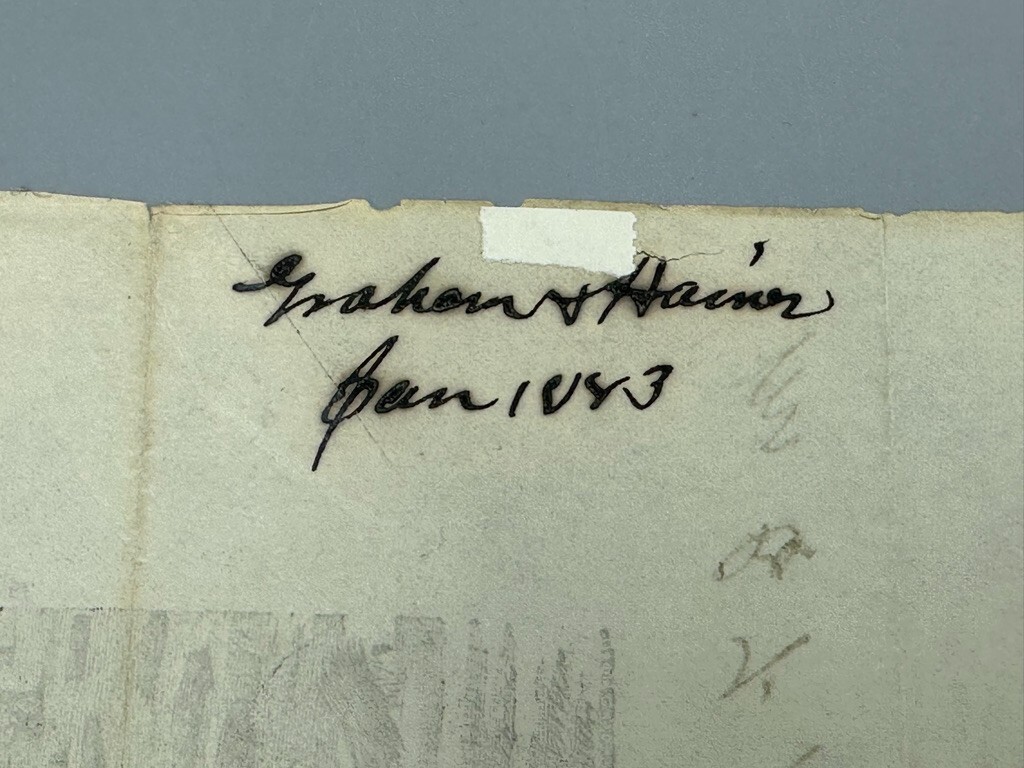 Graham & Hainer
Jan 1883